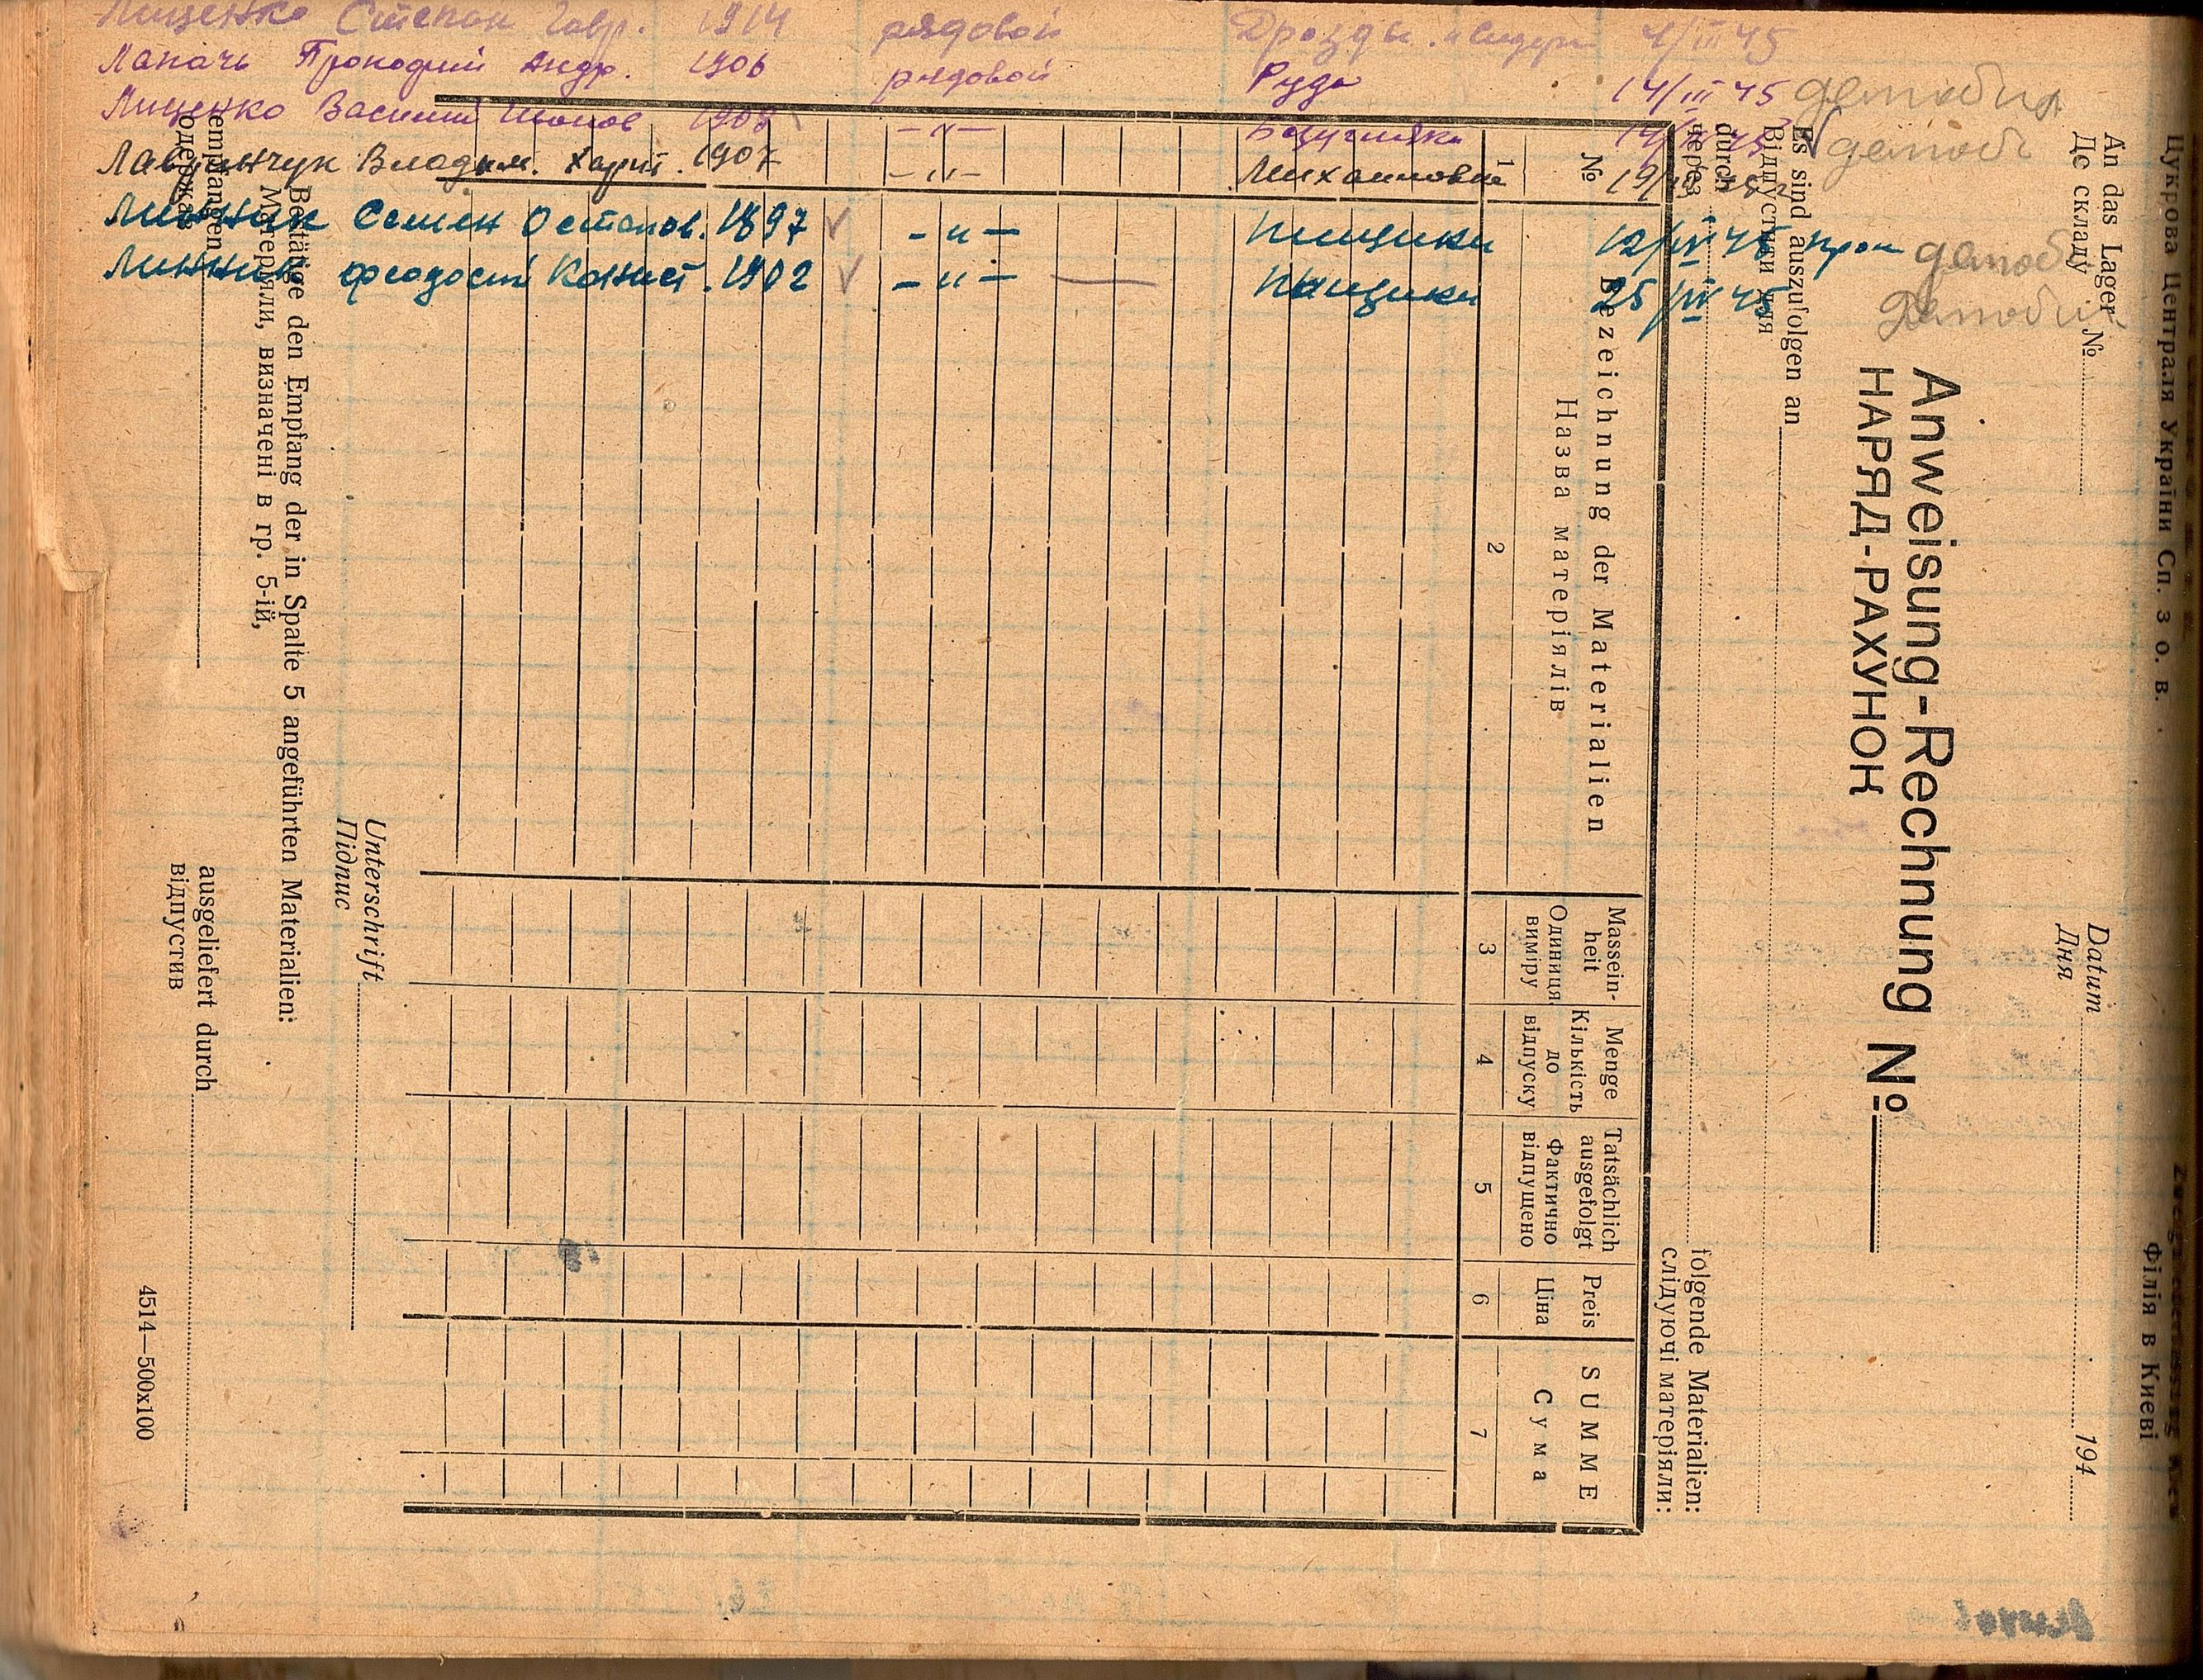 Лищенко Степан Гавр. 1914 рядовой Дрозды 4/III 45
Лапачь Прокофий Андр. 1906 рядовой Руда 14/III 45 демобил
Лищенко Василий 1908 — " — 14/ 45 демоб
Лавринчук Владим. Харит. 1907 — " — Михайловка 19/
Линник Семен Остапов. 1897 — " — Пищики 12/IV 45 демоб
Линник Феодосий Конист. 1902 — " — Пищики 25/IV 45 Демобил
Цукрова Централя України Сп. з о. в.
Філія в Києві
An das Lager №
До складу
Datum
Дня
194
Anweisung-Rechnung №
НАРЯД-РАХУНОК
Es sind auszufolgen an
Відпустити для
durch
через
folgende Materialien:
слідуючі матеріяли:
№
Bezeichnung der Materialien
Назва матеріялів
Massein-
heit
Одиниця
виміру
Menge
Кількість
до
відпуску
Tatsächlich
ausgefolgt
Фактично
відпущено
Preis
Ціна
SUMME
Сума
1 2 3 4 5 6 7
Unterschrift
Підпис
Bestätige den Empfang der in Spalte 5 angeführten Materialien:
Матеріяли, визначені в гр. 5-ій,
empfangen
одержав
ausgeliefert durch
відпустив
4514—500x100